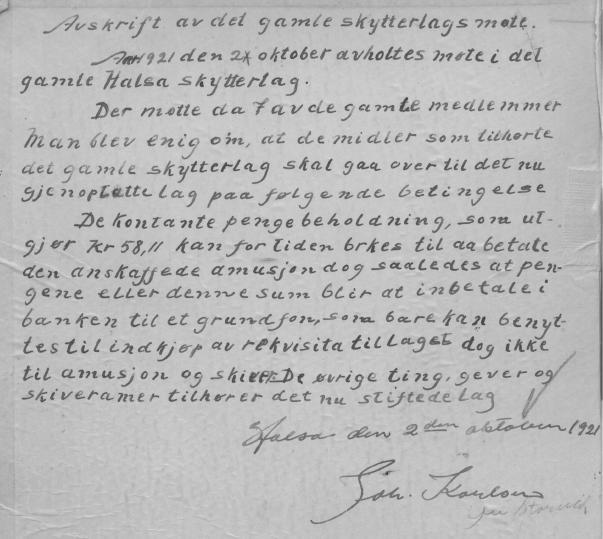 Avskrift av det gamle skytterlags møte.
Aar 1921 den 2 oktober avholtes møte i det
gamle Halsa skytterlag.
Der møtte da 7 av de gamle medlemmer
Man blev enig om, at de midler som tilhørte
det gamle skytterlag skal gaa over til det nu
gjenoptatte lag paa følgende betingelse
De kontante pengebeholdning, som ut-
gjør kr 58,11 kan for tiden brkes til aa betale
den anskaffede amusjon dog saaledes at pen-
gene eller denne sum blir at inbetale i
banken til et grundfon, som bare kan benyt-
tes til indkjøp av rekvisita til laget dog ikke
til amusjon og skiver. De øvrige ting, gever og
skiveramer tilhører det nu stiftede lag
Halsa den 2 den oktober 1921
Joh.